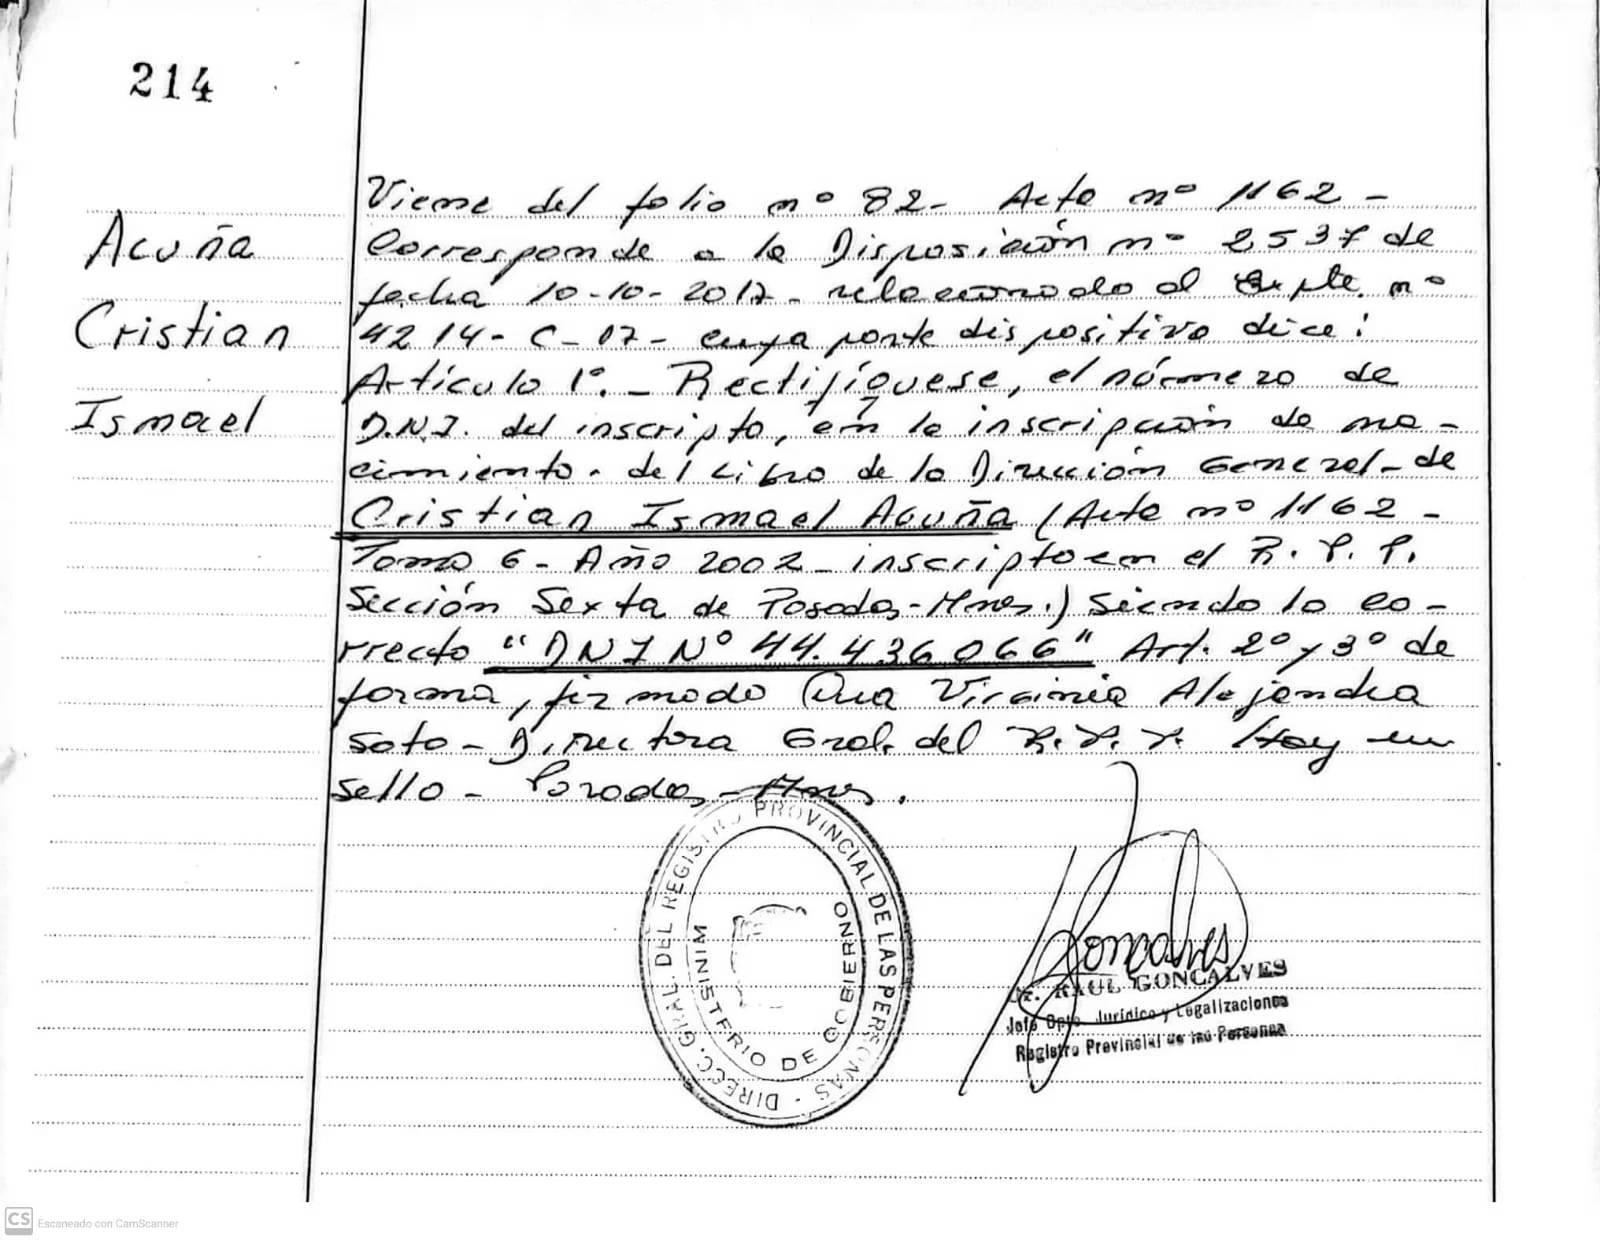 214
Acuña
Cristian
Ismael
Viene del folio nº 82- Acta nº 1162 -
Corresponde a la Disposición nº 2537 de
fecha 10-10-2017- relacionado al Expte. nº
4214- C-17- cuya parte dispositiva dice:
Artículo 1º.- Rectifíquese, el número de
D.N.I. del inscripto, en la inscripción de na-
cimiento- del Libro de la Dirección General- de
Cristian Ismael Acuña (Acta nº 1162 -
Tomo 6 - Año 2002- inscripto en el R. P. P.
Sección Sexta de Posadas-Mnes.) siendo lo co-
rrecto "DNI Nº 44.436.066" Art. 2º y 3º de
forma, firmado Dra Virginia Alejandra
Soto- Directora Gral. del R. P. P. Hay un
sello - Posadas-Mnes.
DIRECC. GRAL. DEL REGISTRO PROVINCIAL DE LAS PERSONAS -
MINISTERIO DE GOBIERNO
Goncalves
Dr. RAUL GONCALVES
Jefe Dpto. Jurídico y Legalizaciones
Registro Provincial de las Personas
CS Escaneado con CamScanner